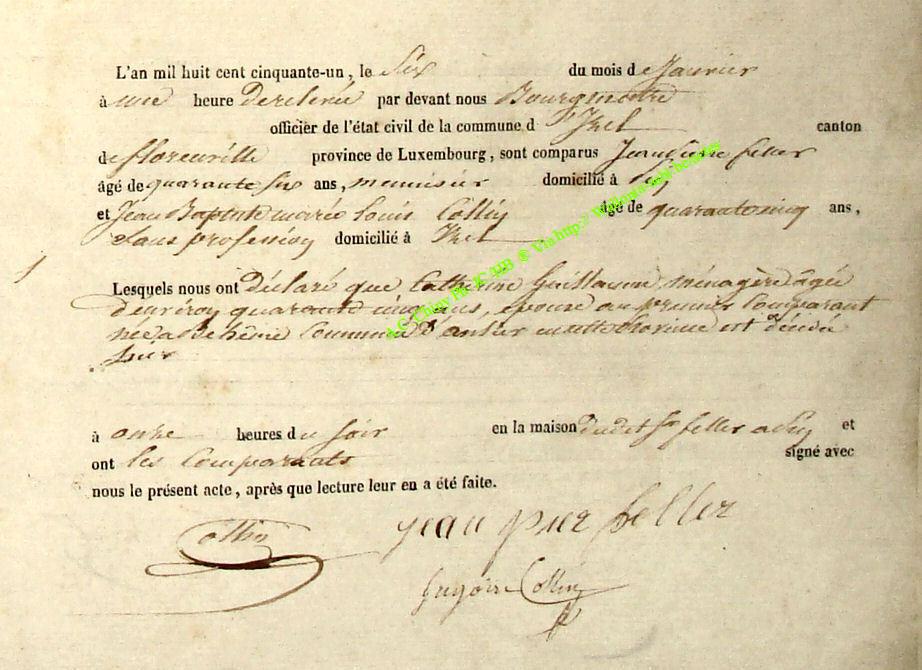 L'an mil huit cent cinquante-un, le Six du mois de Janvier
à une heure de relevée par devant nous Bourgmestre
officier de l'état civil de la commune d'Izel canton
de florenville province de Luxembourg, sont comparus Jean Pierre feller
âgé de quarante six ans, menuisier domicilié à
et Jean Baptiste marie louis Collin âgé de quarante cinq ans,
Sans profession domicilié à Izel
Lesquels nous ont déclaré que Catherine Guillaume, ménagère âgée
d'environ quarante cinq ans, épouse au premier Comparant
née a Behême Commune d'anlier est décédée
hier
à onze heures du soir en la maison dudit Sr feller a et
ont les Comparants signé avec
nous le présent acte, après que lecture leur en a été faite.
Collin jean pier feller
Grégoire Collin
A.G. Chiny